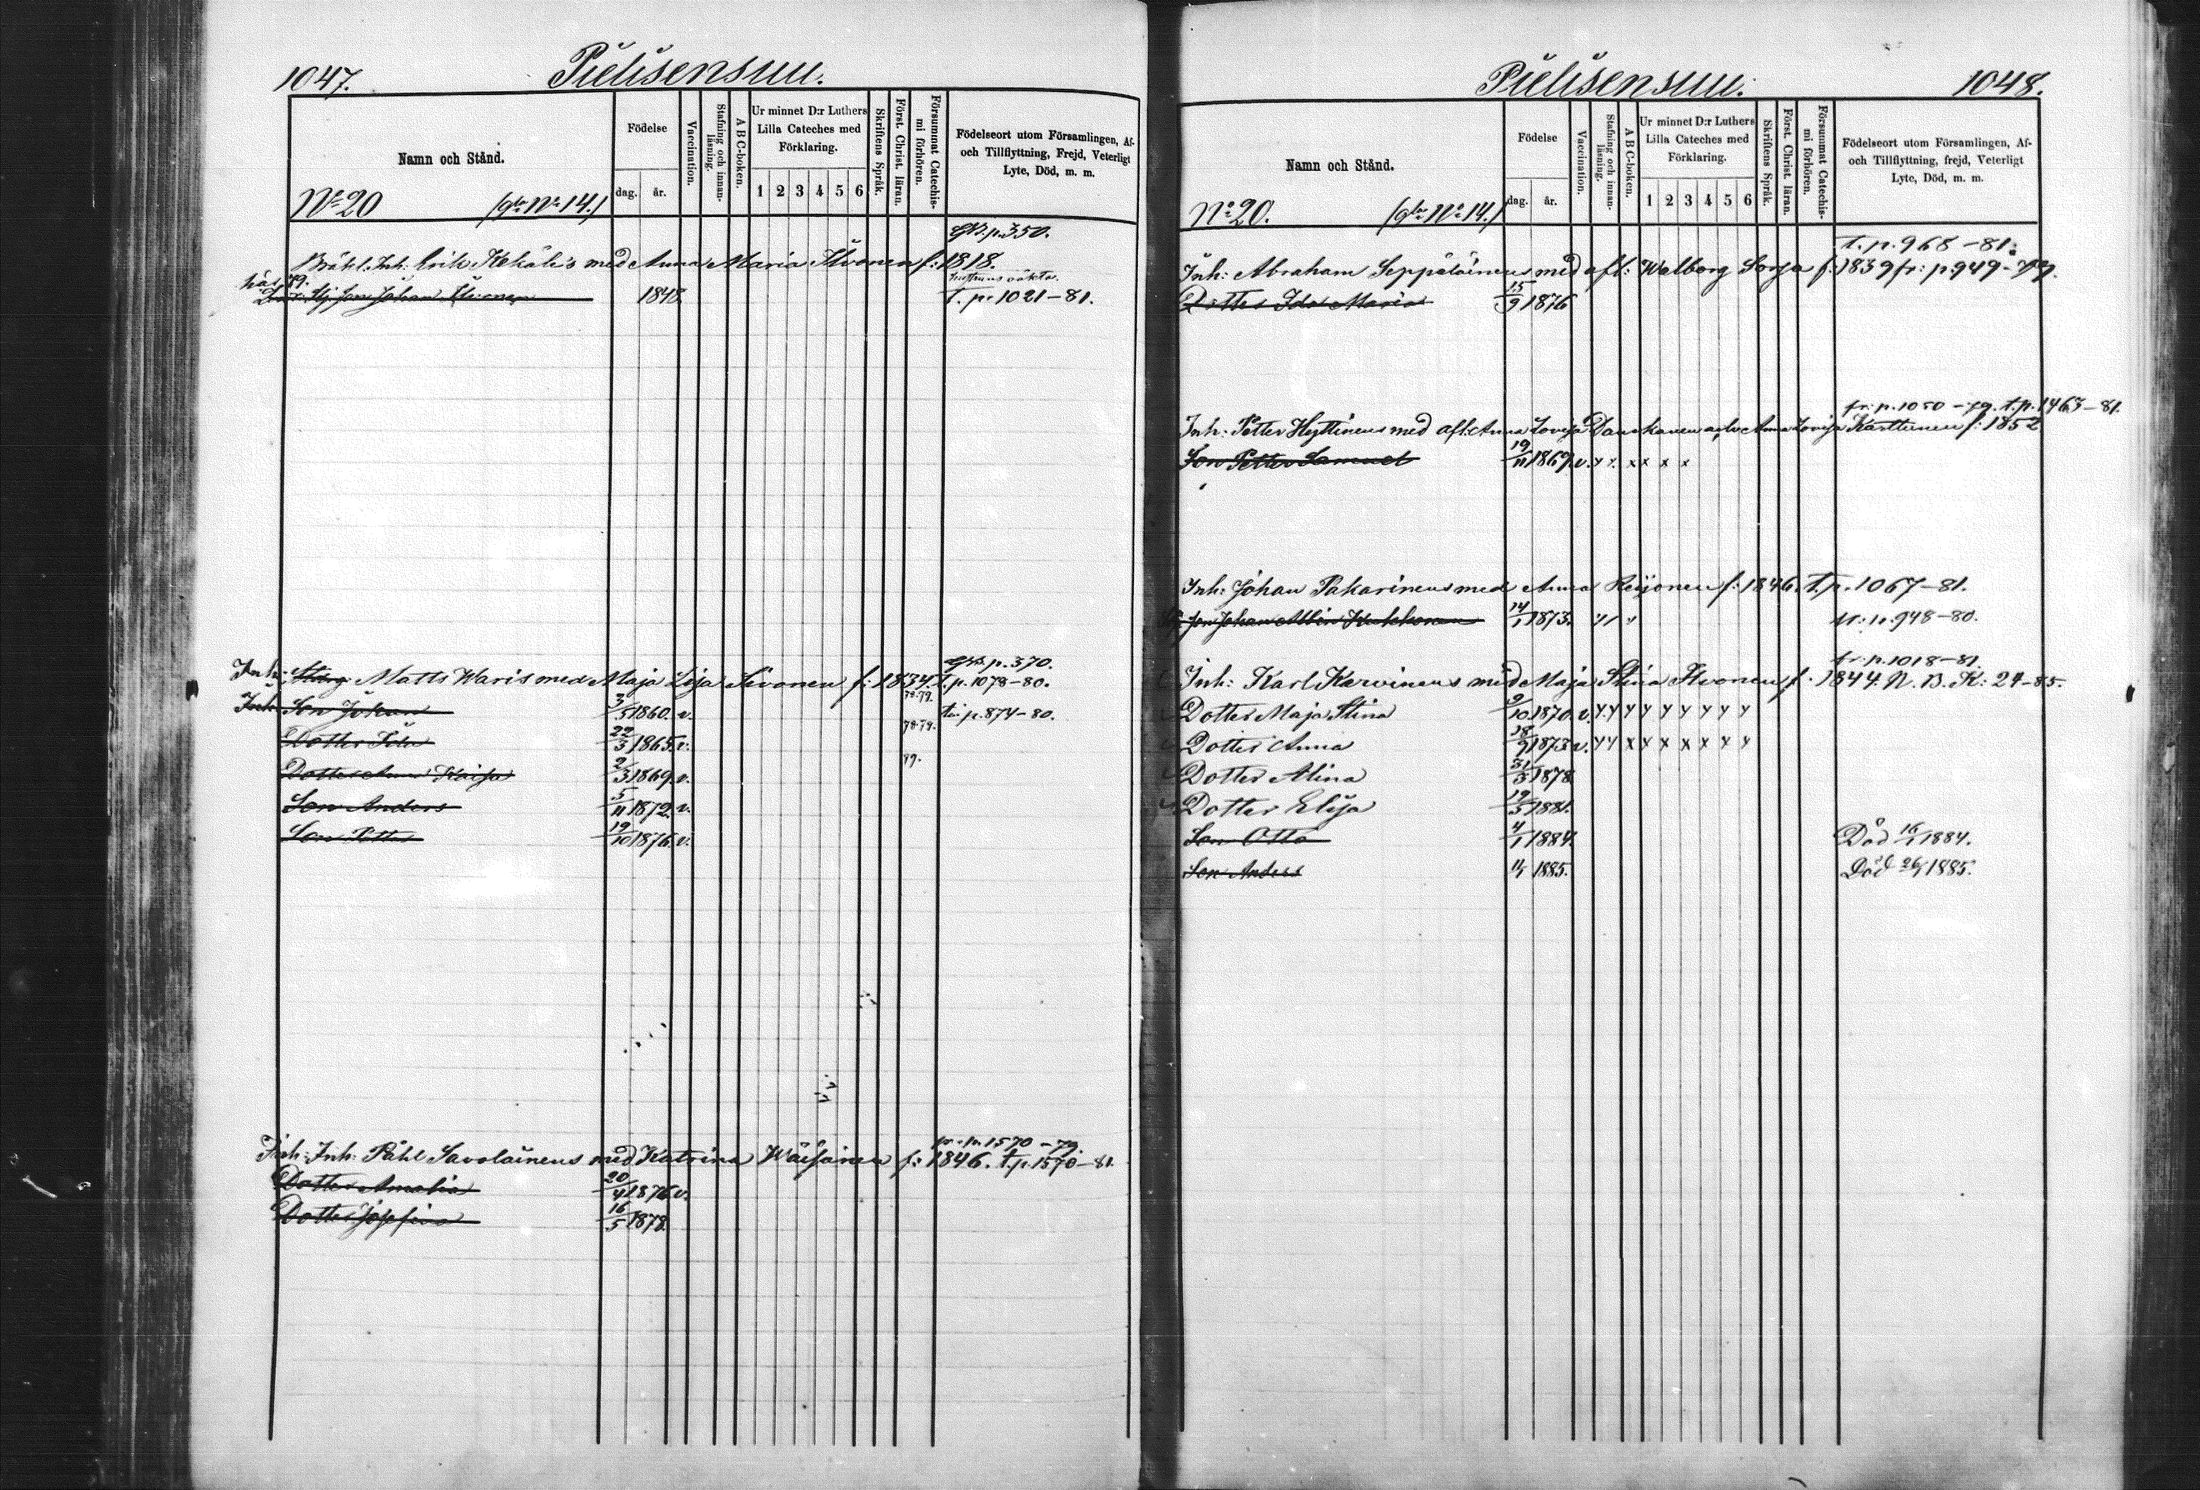 1047.
Pielisensuu.
Namn och Stånd.
Födelse
dag.
år.
Vaccination.
Stafning och innan-
läsning.
A B C-boken.
Ur minnet D:r Luthers
Lilla Cateches med
Förklaring.
1 2 3 4 5 6
Skriftens Språk.
Först. Christ. läran.
Försummat Catechis-
mi förhören.
Födelseort utom Församlingen, Af-
och Tillflyttning, Frejd, Veterligt
Lyte, Död, m. m.
No 20 (gla No 14.)
p. 350.
Inh: Erik Kekäle's med Anna Maria f: 1818.
79.
Son Johan 1848. t. p. 1021-81.
p. 370.
Inh: Matts Waris med Maja Lisa Sivonen f: 1834. t. p. 1078-80.
78-79.
Inh: Son Johan 3/5 1860. v. p. 874-80.
78-79.
Dotter 22/3 1865. v.
79.
Dotter Anna Kaisa 2/3 1869. v.
Son Anders 5/11 1872. v.
Son Petter 19/10 1876. v.
fr. p. 1570-79.
Inh: Inh: Påhl Savolainens med Katrina Wäisänen f: 1846. t. p. 1570-81.
Dotter Amalia 20/4 1876. v.
Dotter Josefina 16/5 1878.
Pielisensuu.
1048.
Namn och Stånd.
Födelse
dag.
år.
Vaccination.
Stafning och innan-
läsning.
A B C-boken.
Ur minnet D:r Luthers
Lilla Cateches med
Förklaring.
1 2 3 4 5 6
Skriftens Språk.
Först. Christ. läran.
Försummat Catechis-
mi förhören.
Födelseort utom Församlingen, Af-
och Tillflyttning, frejd, Veterligt
Lyte, Död, m. m.
No 20. (gla No 14.)
t. p. 968-81.
Inh: Abraham Seppäläinens med afl: Walborg Sorsa f: 1839 fr: p. 949-79.
Dotter Ida Maria 15/9 1876
fr: p. 1050-79. t. p. 1463-81.
Inh: Petter Hyttinens med afl: Anna Lovisa Danskanen Anna Lovisa Karttunen f: 1852
Son Petter Samuel 19/11 1869. v. x x x x x x
Inh: Johan Pakarinens med Anna Reijonen f: 1846. t. p. 1067-81.
Son Johan Albin Kukkonen 14/1 1873. p. 948-80.
fr. p. 1018-81.
Inh: Karl Karvinens med Maja Stina f. 1844. N. B. K: 24-85.
Dotter Maja Stina 9/10 1870. v. x x x x x x x x x
Dotter Anna 18/9 1873. v. x x x x x x x x x
Dotter Alina 31/3 1878.
Dotter Elisa 19/3 1881.
Son Otto 4/1 1884. Död 16/1 1884.
Son Anders 1885. Död 1885.